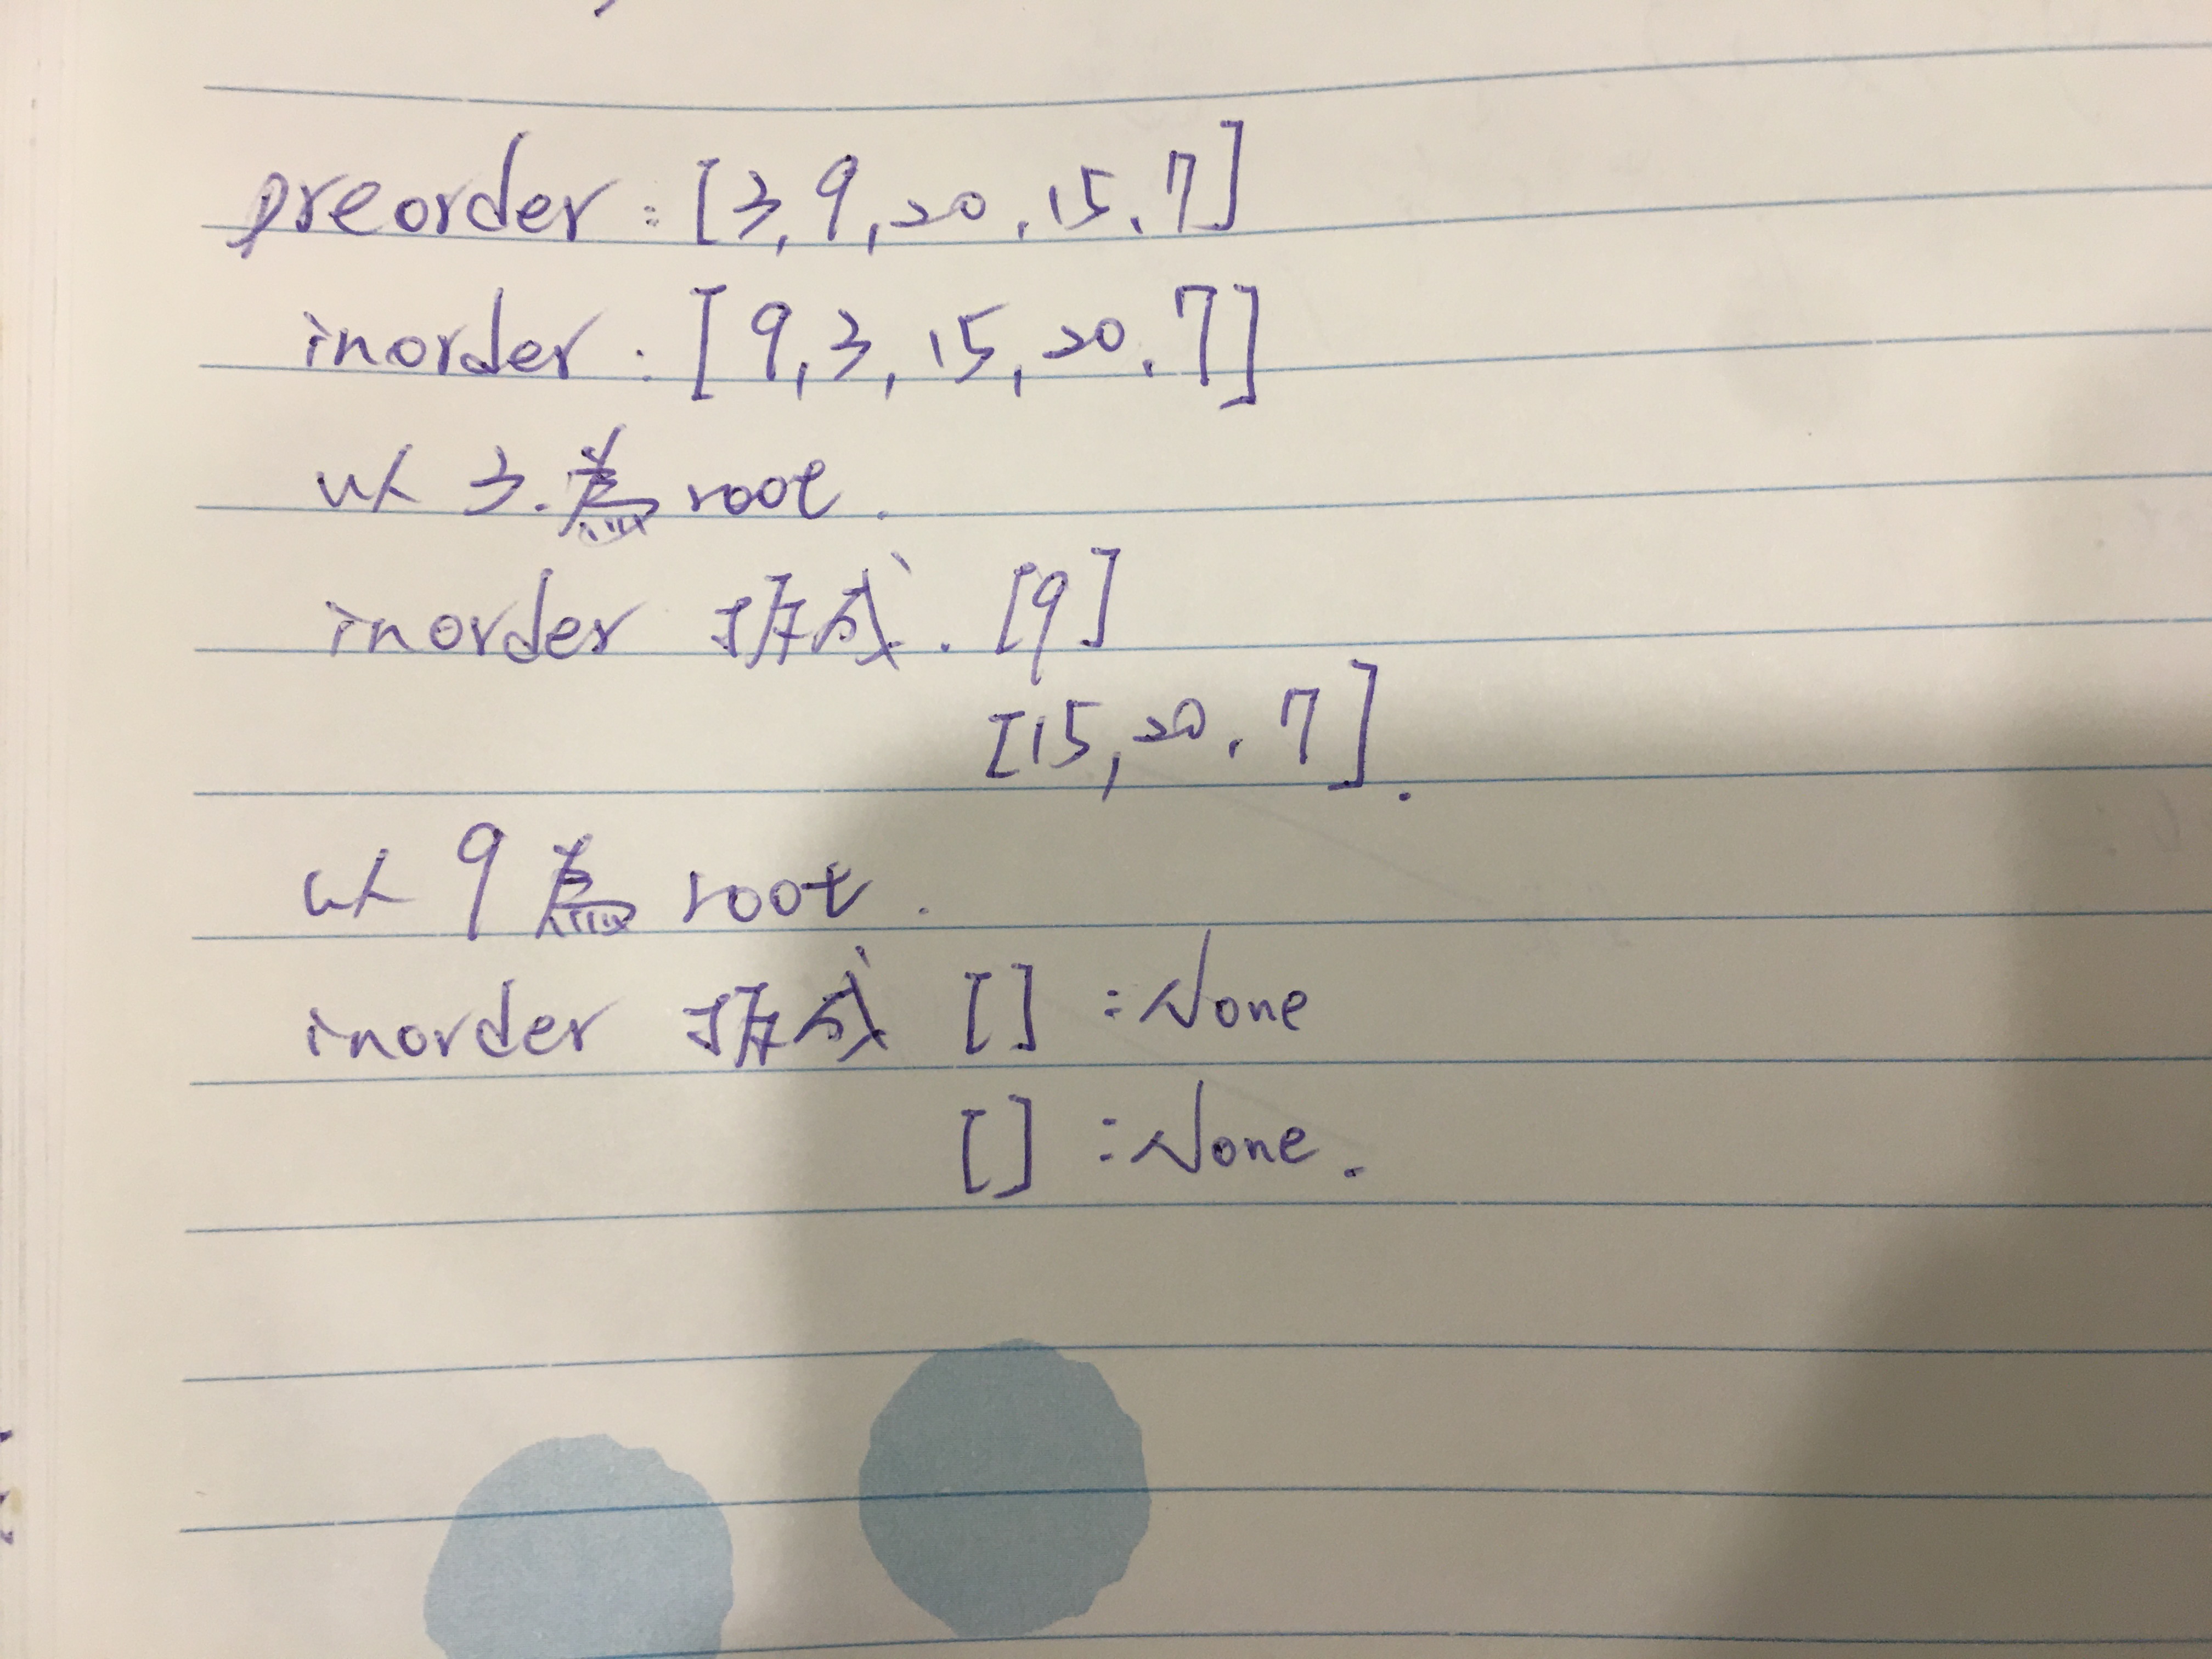 preorder : [3, 9, 20, 15, 7]
inorder : [9, 3, 15, 20, 7]
以 3. 為 root.
inorder 拆成. [9]
[15, 20, 7].
以 9 為 root.
inorder 拆成 [] : None
[] : None.